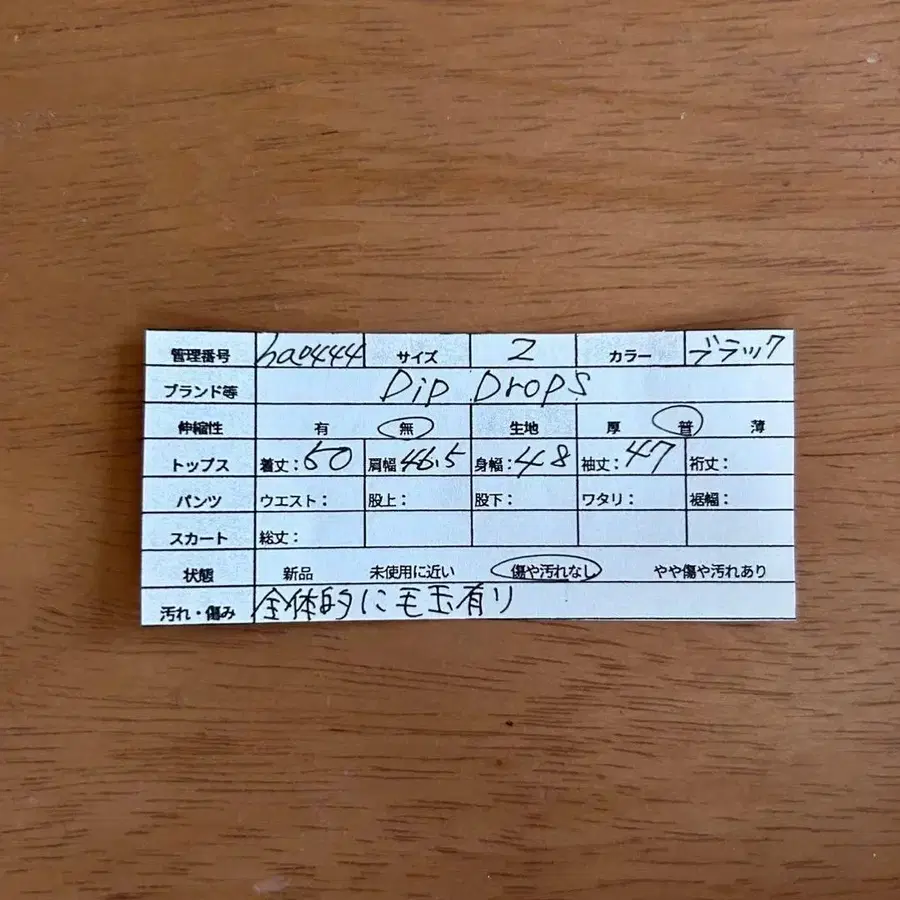 管理番号 ha0444 サイズ 2 カラー ブラック
ブランド等 Dip Drops
伸縮性 有 無 生地 厚 普 薄
トップス 着丈：60 肩幅46.5 身幅：48 袖丈：47 裄丈：
パンツ ウエスト： 股上： 股下： ワタリ： 裾幅：
スカート 総丈：
状態 新品 未使用に近い 傷や汚れなし やや傷や汚れあり
汚れ・傷み 全体的に毛玉有り